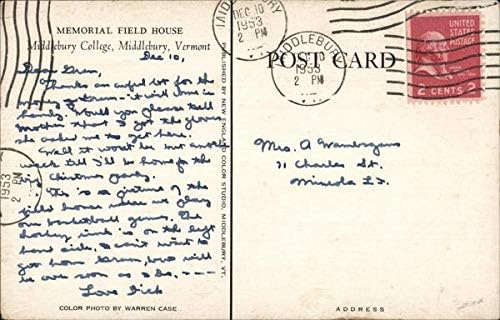 MEMORIAL FIELD HOUSE
Middlebury College, Middlebury, Vermont
Dec 10,
Dear Gram,
Thanks an awful lot for the
money Gram - it will come in
handy. Would you please tell
mother that I got the gloves
she asked me to get here.
Well it won't be but another
week till I'll be home for the
big Christmas party.
This is a picture of the
field house where we play
our basketball games. The
hockey rink is on the left
hand side. I can't wait to
get home Gram, but will
be over soon as I do. ----
Love Dick
COLOR PHOTO BY WARREN CASE
PUBLISHED BY NEW ENGLAND COLOR STUDIO, MIDDLEBURY, VT.
MIDDLEBURY
DEC 10
1953
2 PM
MIDDLEBURY
1953
2 PM
1953
2 PM
UNITED
STATES
POSTAGE
2 CENTS 2
POST CARD
Mrs. A
71 Charles St.
Mineola L.I.
ADDRESS